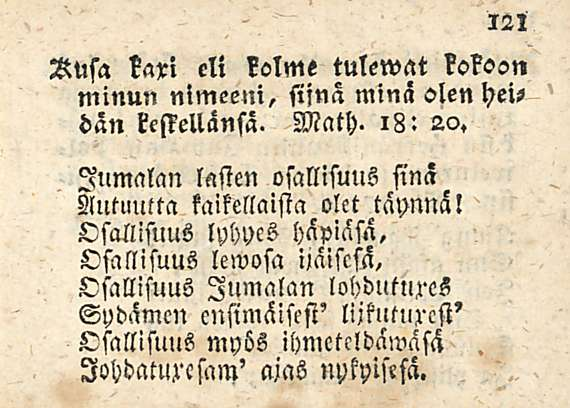 121
Kusa kaxi eli kolme tulewat kokoon
minun nimeeni, siinä minä olen hei⸗
dän keskellänsä. Math. 18: 20.
Jumalan lasten osallisuus sinä
Autuutta kaikellaista olet täynnä!
Osallisuus lyhyes häpiäsä,
Osallisuus lewosa ijäisesä,
Osallisuus Jumalan lohdutuxes
Sydämen ensimäisest' liikutuxest'
Osallisuus myös ihmeteldäwäsä
Johdatuxesam' ajas nykyisesä.